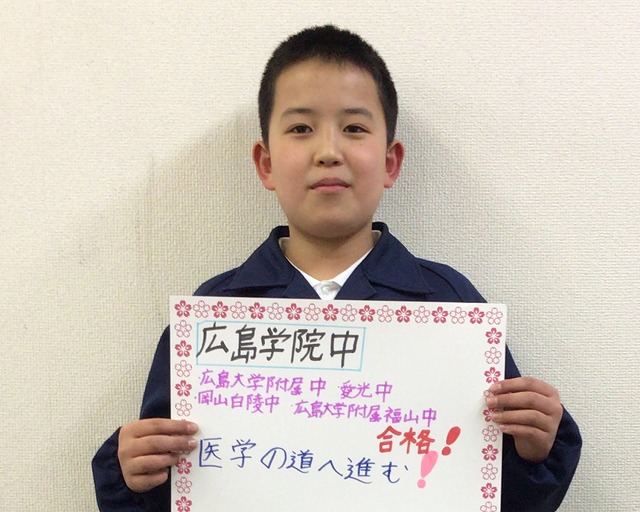 広島学院中
・広島大学附属中 ・愛光中
・岡山白陵中 ・広島大学附属福山中
合格!
医学の道へ進む!